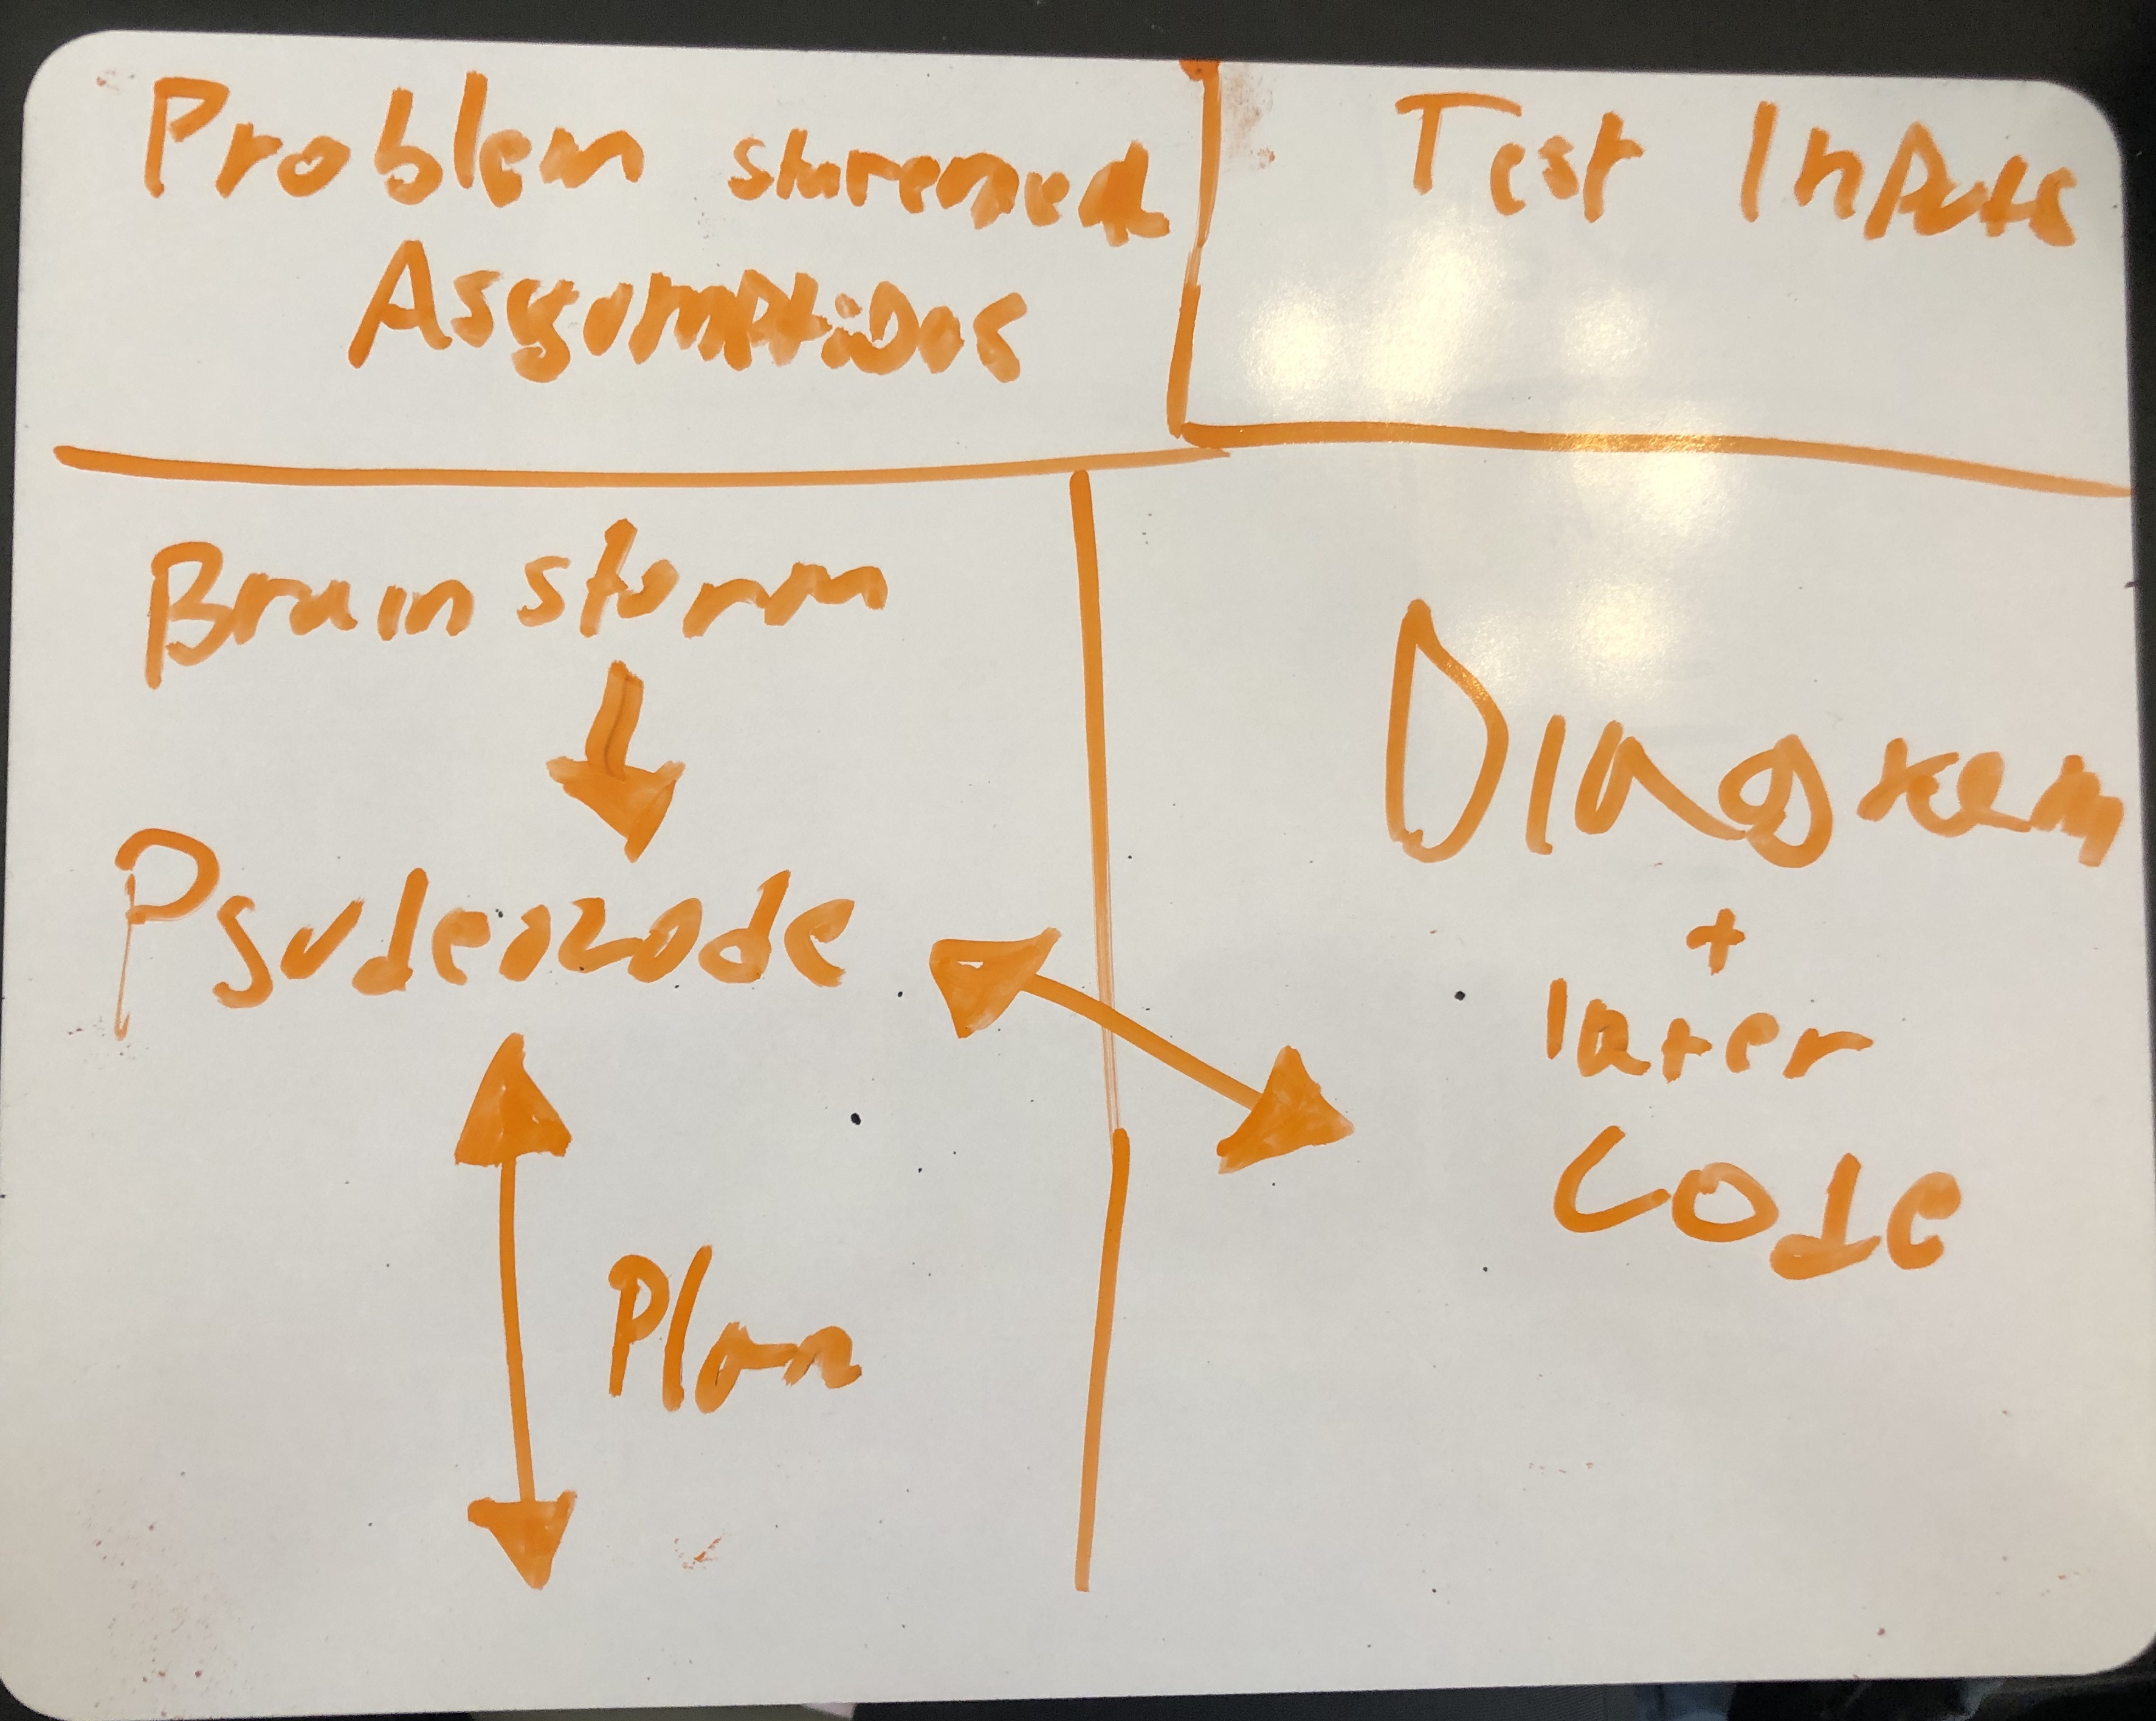 Problem statement
Assumptions
Test Inputs
Brain storm
Psudeocode
Plan
Diagram
+
later
Code